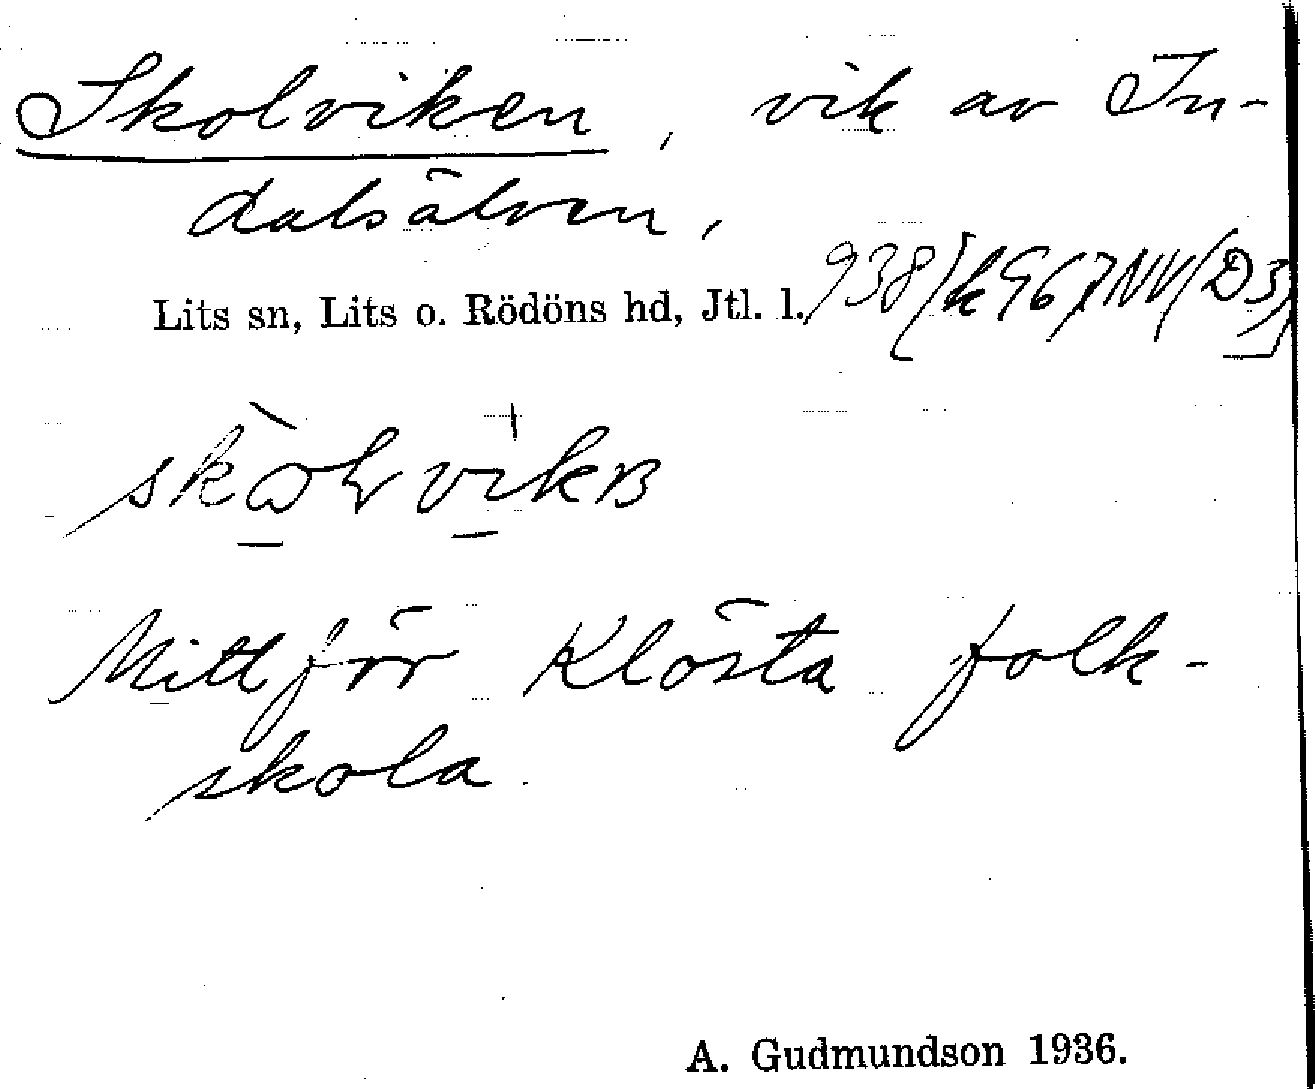 Skolviken, vik av In-
dalsälven,
Lits sn, Lits o. Rödöns hd, Jtl. l.
Mittför Klösta folk-
skola.
A. Gudmundson 1936.